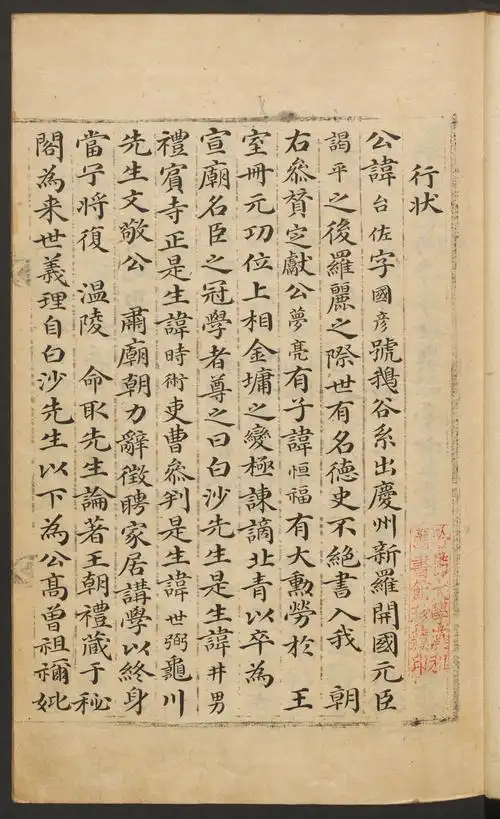 行状
公諱台佐字國彦號鵝谷系出慶州新羅開國元臣
謁平之後羅麗之際世有名德史不絕書入我 朝
右叅賛定獻公夢亮有子諱恒福有大勳勞於 王
室冊元功位上相金墉之變極諫謫北青以卒為
宣廟名臣之冠學者尊之曰白沙先生是生諱井男
禮賓寺正是生諱時術吏曹叅判是生諱世弼龜川
先生文敬公 肅廟朝力辭徵聘家居講學以終身
當宁將復 温陵 命取先生論著王朝禮藏于秘
閣為来世義理自白沙先生以下為公高曾祖禰妣